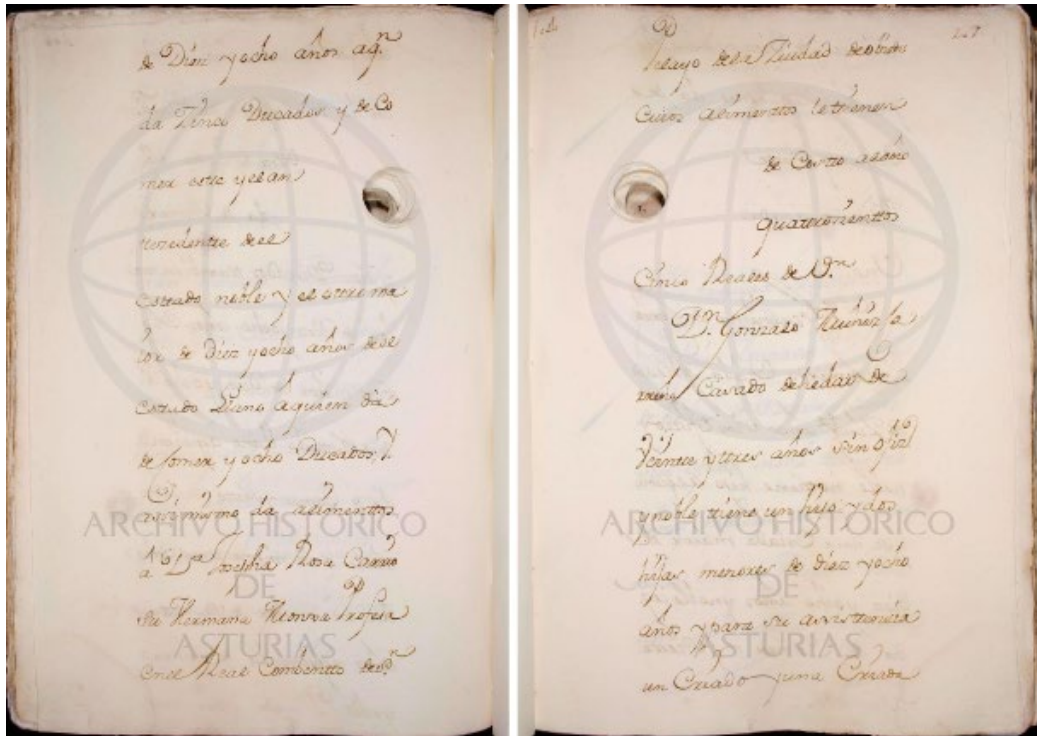 de Diez yocho años aqn
da Zinco Ducados y de Co
mer este yelan
tezedentte deel
estado noble y el ottro ma
ior de Diez yocho años deel
estado Llano aquien da
de Comer yocho Ducados, Y
assimismo da alimenttos
a Da Josepha Rosa
su Hermana Monxa Profesa
en el Real Combentto de Sn
Pelayo dela Ziudad de Oviedo
Cuios alimenttos le ttienen
de Costto alaño
quattrozienttos
Cinco Reales de Vn
Dn Gonzalo
Casado de hedad de
Veintte y ttres años sin ofizio
y noble ttiene un hijo y dos
hijas menores de diez yocho
años y para su assisttenzia
un Criado y una Criada
ARCHIVO HISTÓRICO
DE
ASTURIAS
ARCHIVO HISTÓRICO
DE
ASTURIAS